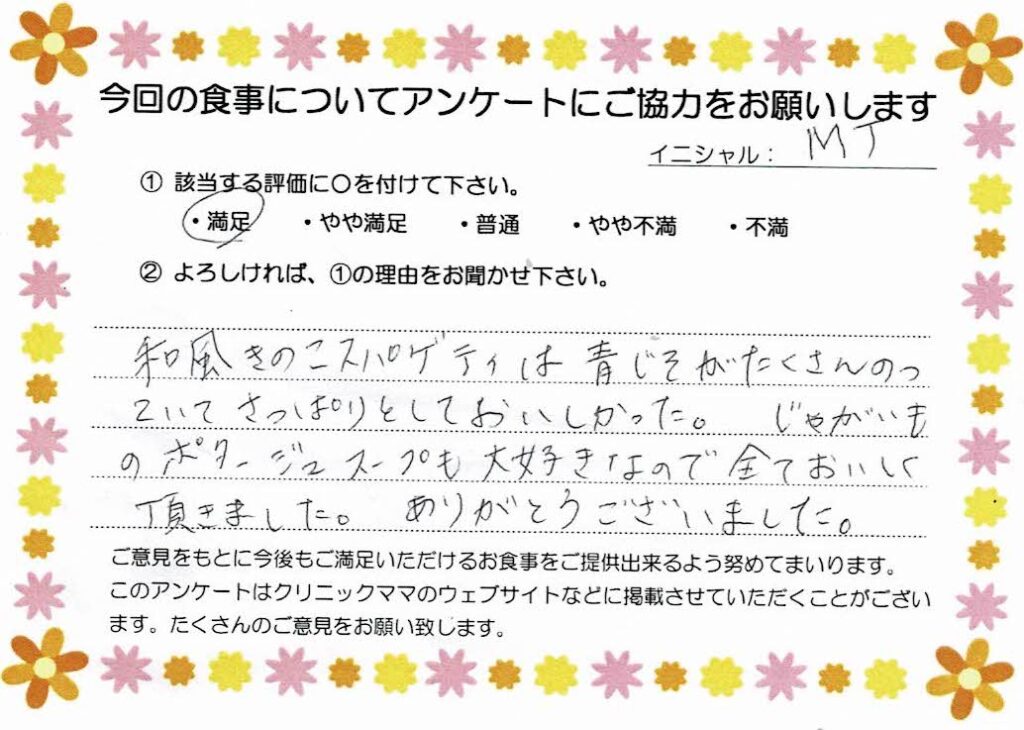 今回の食事についてアンケートにご協力をお願いします
イニシャル： MT
① 該当する評価に〇を付けて下さい。
・満足 ・やや満足 ・普通 ・やや不満 ・不満
② よろしければ、①の理由をお聞かせ下さい。
和風きのこスパゲティは青じそがたくさんのっ
ていてさっぱりとしておいしかった。 じゃがいも
のポタージュスープも大好きなので全ておいしく
頂きました。 ありがとうございました。
ご意見をもとに今後もご満足いただけるお食事をご提供出来るよう努めてまいります。
このアンケートはクリニックママのウェブサイトなどに掲載させていただくことがござい
ます。たくさんのご意見をお願い致します。